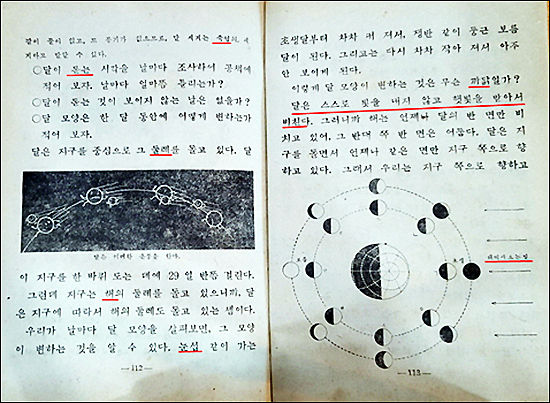 같이 물이 없고, 또 공기가 없으므로, 달 세계는 죽음의 세
계라고 말할 수 있다.
○달이 돋는 시각을 날마다 조사하여 공책에
적어 보자. 날마다 얼마쯤 틀리는가?
○달이 돋는 것이 보이지 않는 날은 없을가?
○달 모양은 한 달 동안에 어떻게 변하는가
적어 보자.
달은 지구를 중심으로 그 둘레를 돌고 있다. 달
달은 이러한 운동을 한다.
이 지구를 한 바퀴 도는 데에 29 일 반쯤 걸린다.
그런데 지구는 해의 둘레를 돌고 있으니까, 달
은 지구에 따라서 해의 둘레도 돌고 있는 셈이다.
우리가 날마다 달 모양을 살펴보면, 그 모양
이 변하는 것을 알 수 있다. 눈섭 같이 가는
—112—
초생달부터 차차 커 져서, 쟁반 같이 둥근 보름
달이 된다. 그리고는 다시 차차 작아 져서 아주
안 보이게 된다.
이렇게 달 모양이 변하는 것은 무슨 까닭일가?
달은 스스로 빛을 내지 않고 햇빛을 받아서
비친다. 그러니까 해는 언제나 달의 반 면만 비
치고 있어, 그 반대 쪽 반 면은 어둡다. 달은 지
구를 돌면서 언제나 같은 면만 지구 쪽으로 향
하고 있다. 그래서 우리는 지구 쪽으로 향하고
보름
해에서 오는 빛
—113—